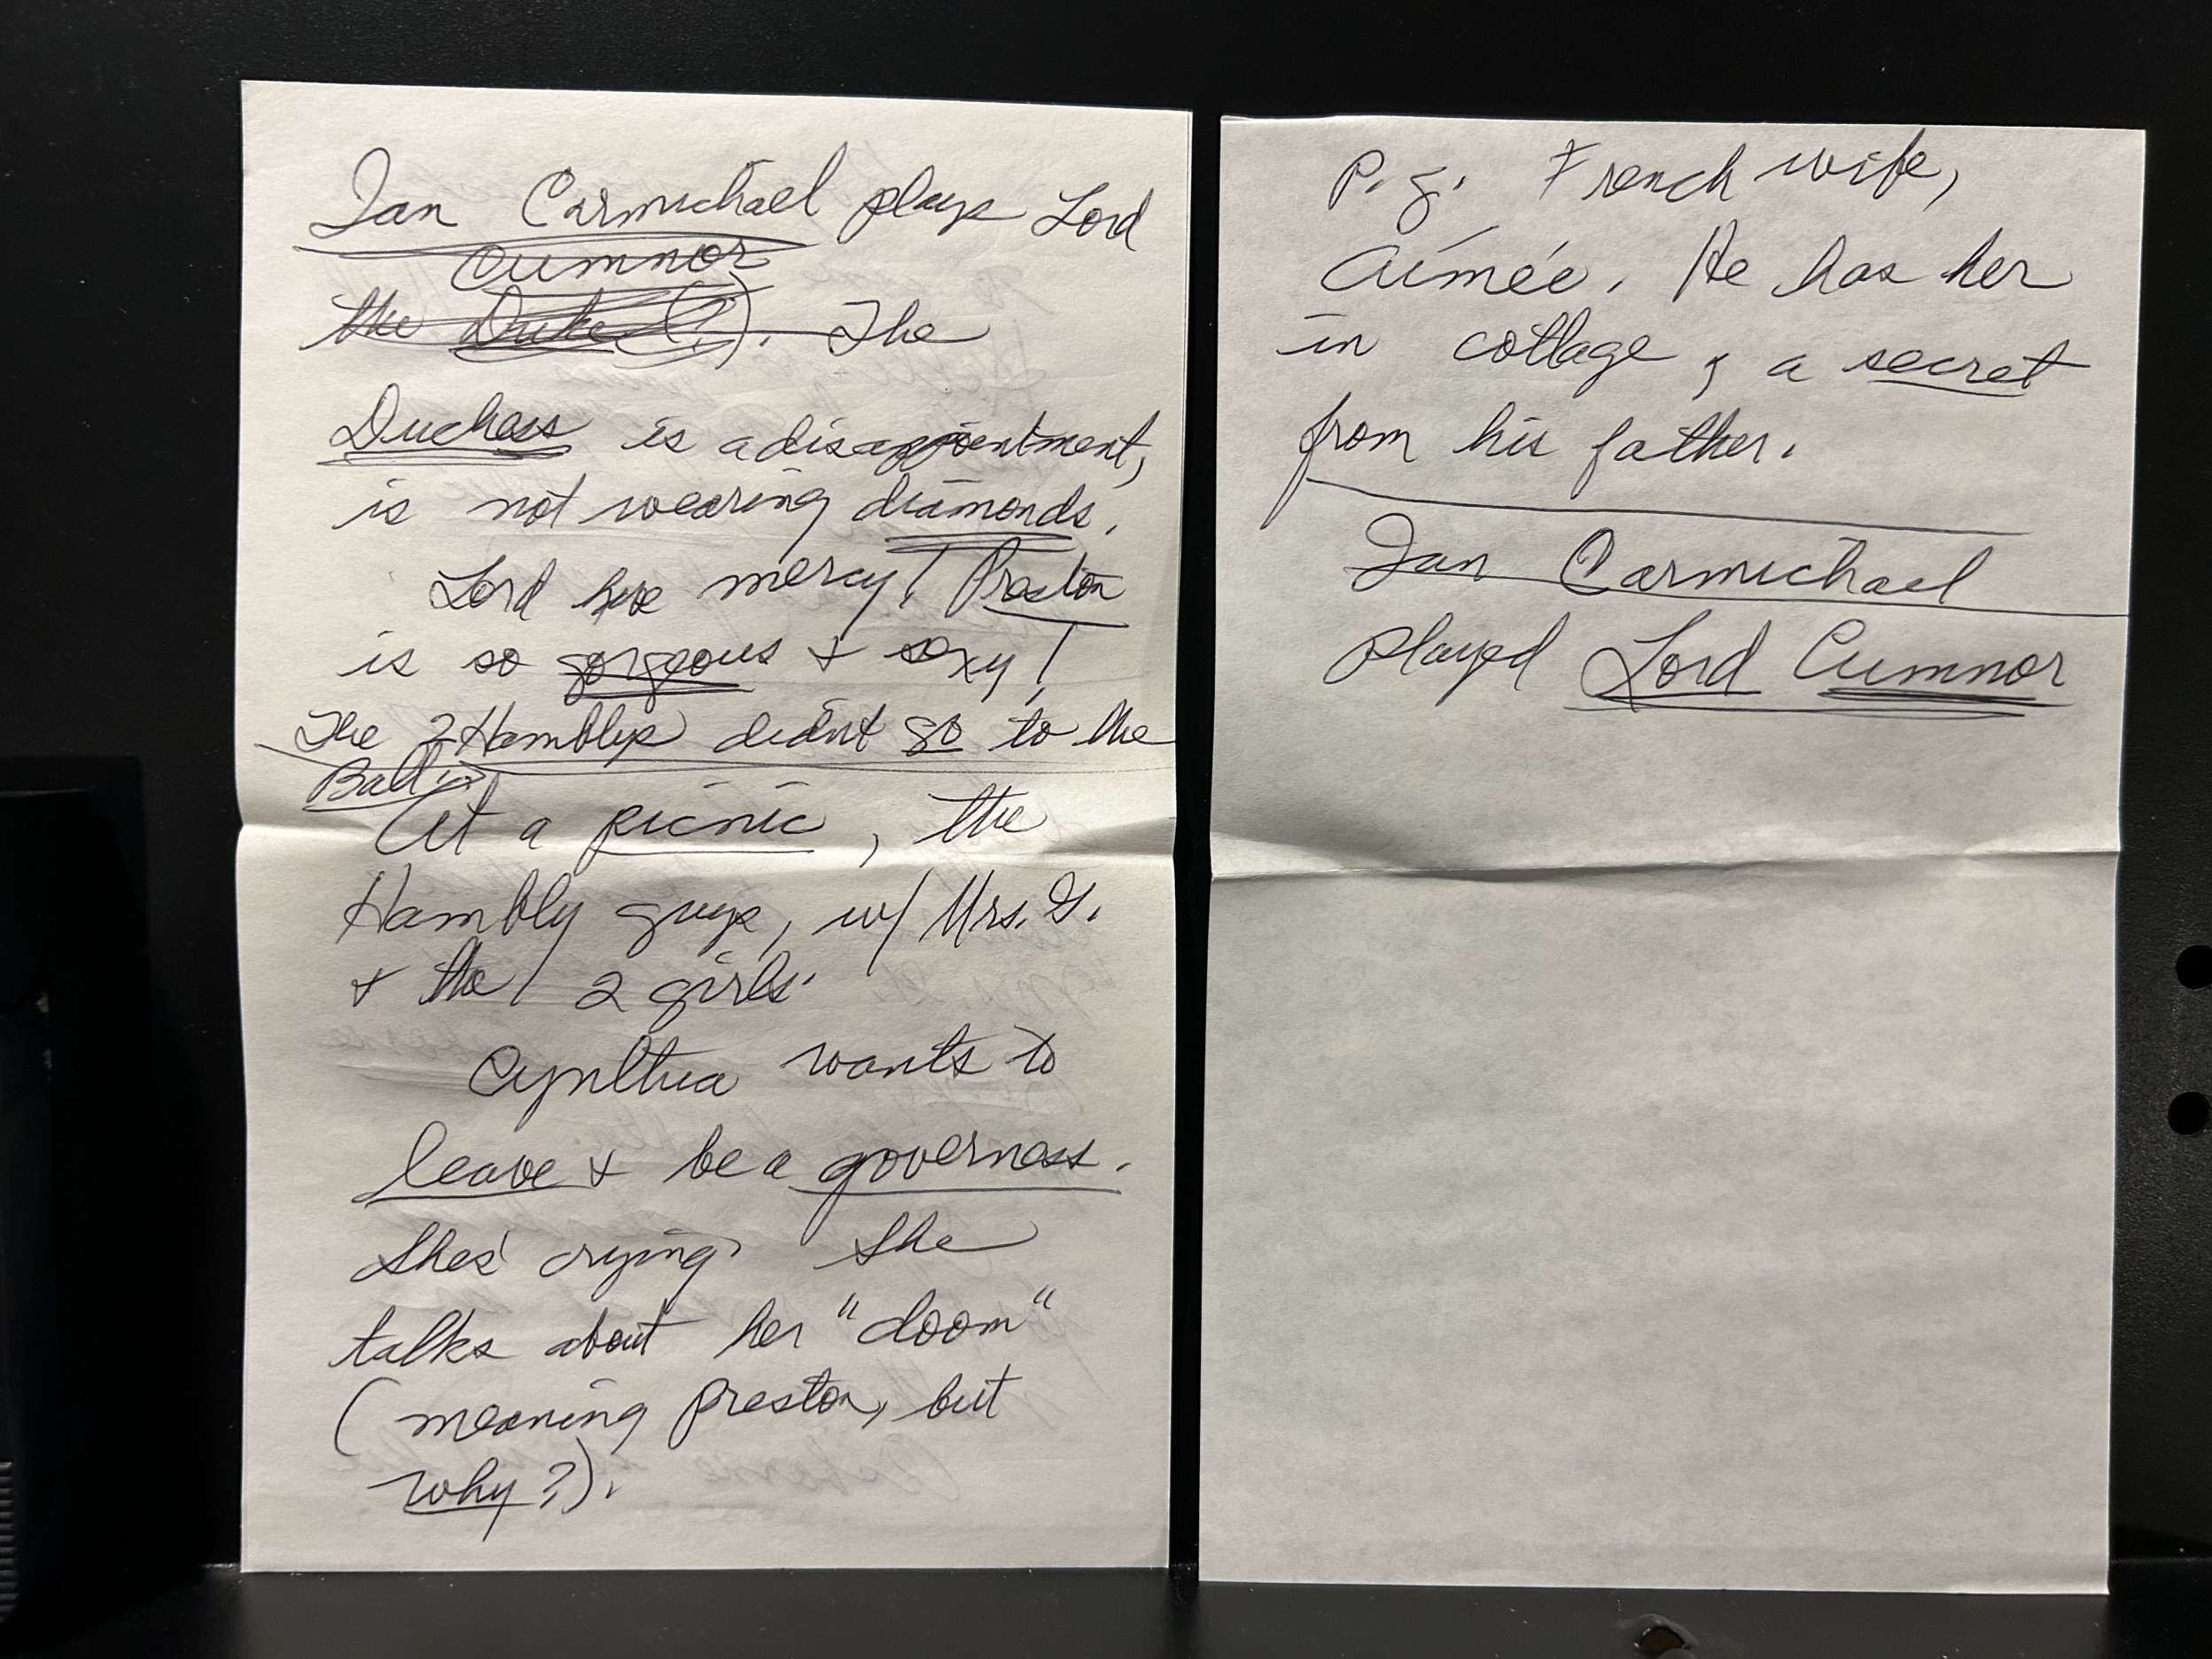 Ian Carmichael plays Lord
Cumnor
the Duke (?). The
Duchess is a disappointment,
is not wearing diamonds.
Lord have mercy! Preston
is so gorgeous & sexy!
The 2 Hamblys didn't go to the
Ball.
At a picnic, the
Hambly guys, w/ Mrs. G.
& the 2 girls.
Cynthia wants to
leave & be a governess.
She's crying. She
talks about her "doom"
(meaning Preston, but
why?).
P.g. French wife,
Aimée. He has her
in cottage, a secret
from his father.
Ian Carmichael
played Lord Cumnor